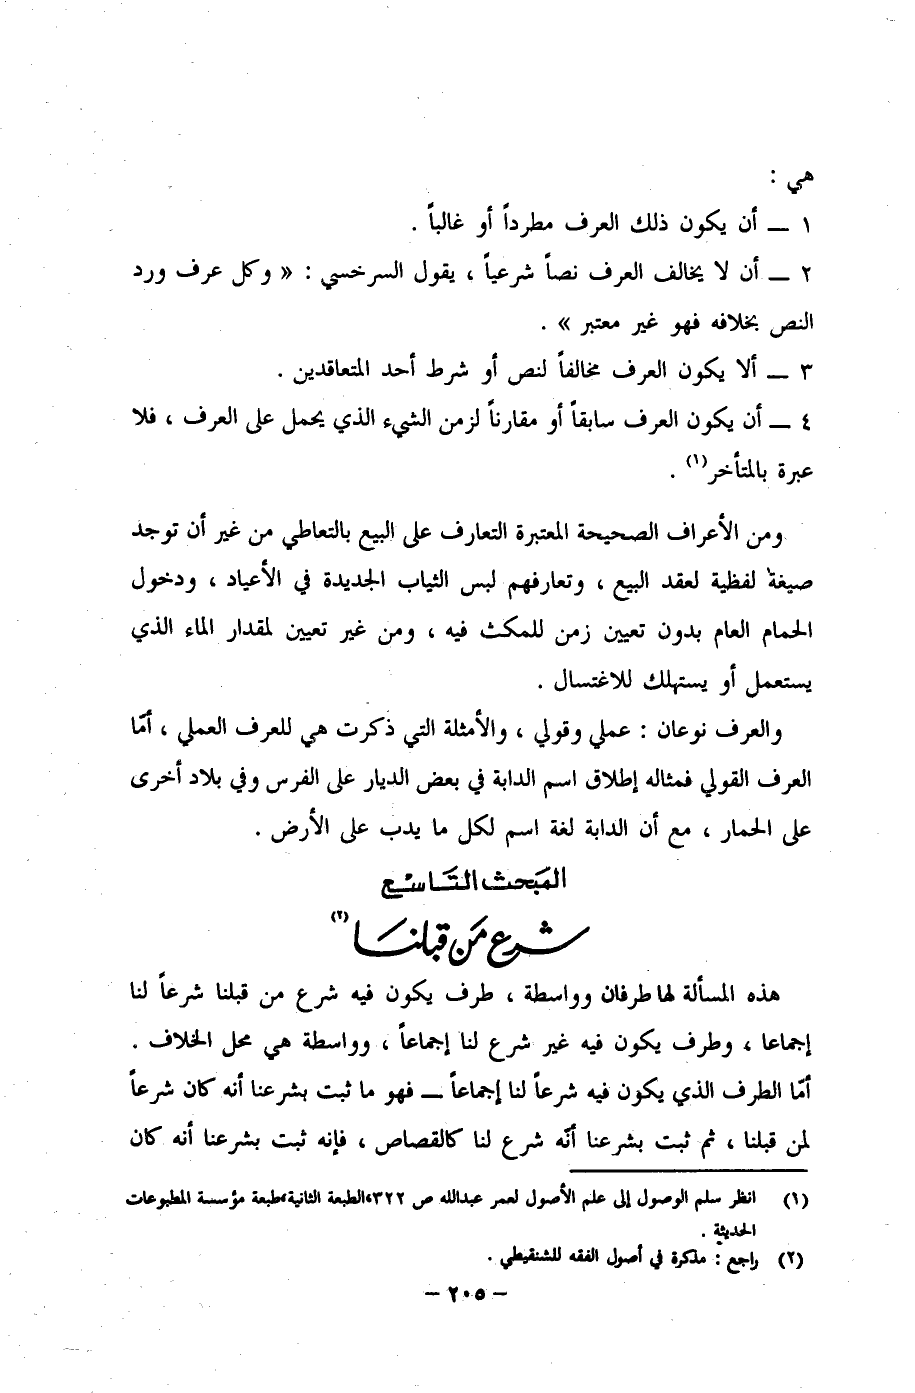 هي :
١ ـ أن يكون ذلك العرف مطرداً أو غالباً .
٢ ـ أن لا يخالف العرف نصاً شرعياً ، يقول السرخسي : « وكل عرف ورد
النص بخلافه فهو غير معتبر » .
٣ ـ ألا يكون العرف مخالفاً لنص أو شرط أحد المتعاقدين .
٤ ـ أن يكون العرف سابقاً أو مقارناً لزمن الشيء الذي يحمل على العرف ، فلا
عبرة بالمتأخر(١) .
ومن الأعراف الصحيحة المعتبرة التعارف على البيع بالتعاطي من غير أن توجد
صيغة لفظية لعقد البيع ، وتعارفهم لبس الثياب الجديدة في الأعياد ، ودخول
الحمام العام بدون تعيين زمن للمكث فيه ، ومن غير تعيين لمقدار الماء الذي
يستعمل أو يستهلك للاغتسال .
والعرف نوعان : عملي وقولي ، والأمثلة التي ذكرت هي للعرف العملي ، أمّا
العرف القولي فمثاله إطلاق اسم الدابة في بعض الديار على الفرس وفي بلاد أخرى
على الحمار ، مع أن الدابة لغة اسم لكل ما يدب على الأرض .
المبحث التاسع
شرع من قبلنا(٢)
هذه المسألة لها طرفان وواسطة ، طرف يكون فيه شرع من قبلنا شرعاً لنا
إجماعا ، وطرف يكون فيه غير شرع لنا إجماعاً ، وواسطة هي محل الخلاف .
أمّا الطرف الذي يكون فيه شرعاً لنا إجماعاً ـ فهو ما ثبت بشرعنا أنه كان شرعاً
لمن قبلنا ، ثم ثبت بشرعنا أنّه شرع لنا كالقصاص ، فإنه ثبت بشرعنا أنه كان
(١) انظر سلم الوصول إلى علم الأصول لعمر عبدالله ص ٣٢٢،الطبعة الثانية،طبعة مؤسسة المطبوعات
الحديثة .
(٢) راجع : مذكرة في أصول الفقه للشنقيطي .
– ٢٠٥ –